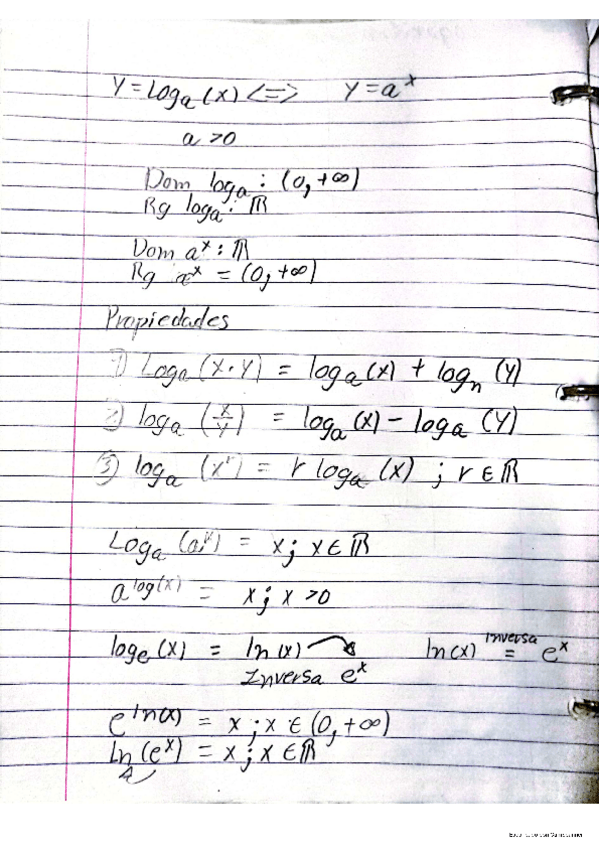 Y = Loga (x) <=> Y = a^x
a > 0
Dom loga : (0, +∞)
Rg loga : ℝ
Dom a^x : ℝ
Rg a^x = (0, +∞)
Propiedades
1) Loga (X · Y) = loga (x) + logn (Y)
2) loga (X/Y) = loga (x) - loga (Y)
3) loga (x^r) = r loga (x) ; r ∈ ℝ
Loga (a^x) = x ; x ∈ ℝ
a^log(x) = x ; x > 0
loge (x) = ln(x) ln(x) inversa = e^x
Inversa e^x
e^ln(x) = x ; x ∈ (0, +∞)
ln (e^x) = x ; x ∈ ℝ